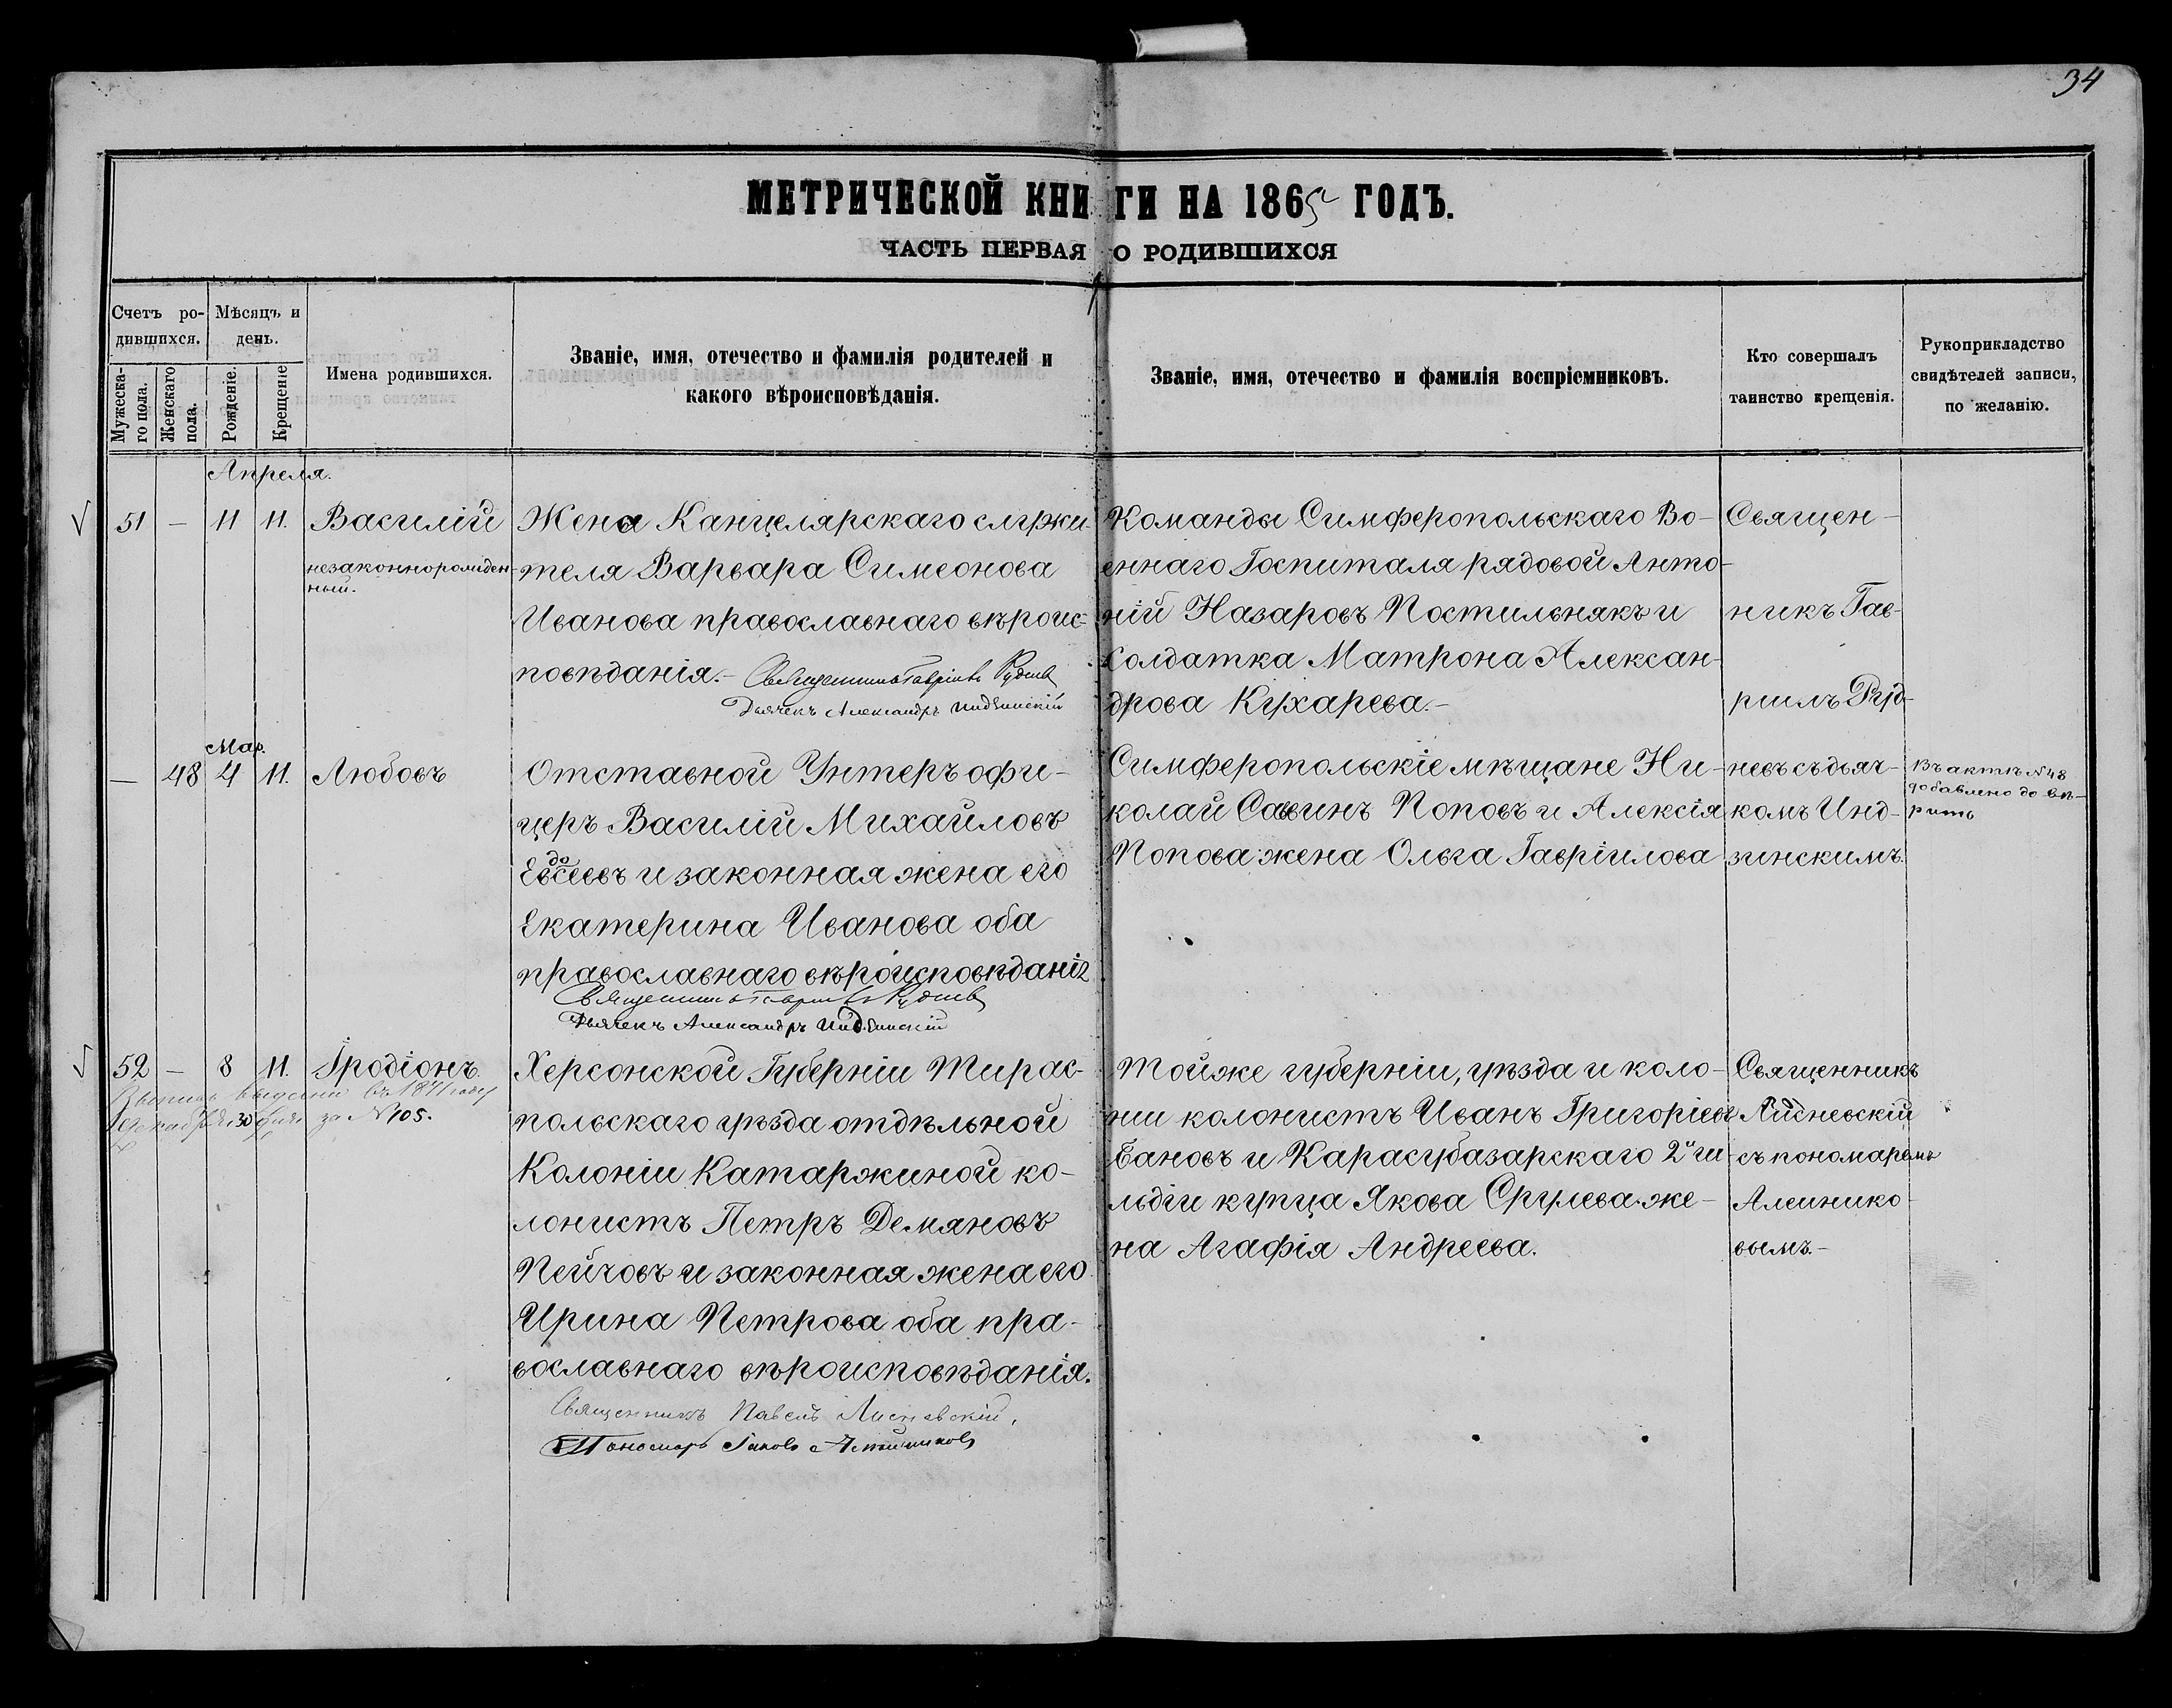 34
МЕТРИЧЕСКОЙ КНИГИ НА 1865 ГОДЪ.
ЧАСТЬ ПЕРВАЯ О РОДИВШИХСЯ
Счетъ ро-
дившихся.
Мужеска-
го пола.
Женскаго
пола.
Мѣсяцъ и
день.
Рожденіе.
Крещеніе
Имена родившихся.
Званіе, имя, отечество и фамилія родителей и
какого вѣроисповѣданія.
Званіе, имя, отечество и фамилія воспріемниковъ.
Кто совершалъ
таинство крещенія.
Рукоприкладство
свидѣтелей записи,
по желанію.
Апреля.
51 — 11 11. Василій
незаконнорожден-
ный.
Жена Канцелярскаго служи-
теля Варвара Симеонова
Иванова православнаго вѣроис-
повѣданія.-
Священникъ Гавріилъ Руднев
Дьячекъ Александръ Индзинскій
Команды Симферопольскаго Во-
еннаго Госпиталя рядовой Анто-
ній Назаровъ Постильнякъ и
солдатка Матрона Алексан-
дрова Кухарева.-
Священ-
никъ Гав-
ріилъ Руд-
Мар.
— 48 4 11. Любовь
Отставной Унтеръ офи-
церъ Василій Михайловъ
до
Евсеевъ и законная жена его
Екатерина Иванова оба
православнаго вѣроисповѣданія
Священникъ Гавріилъ Руднев
Дьячекъ Александръ Индзинскій
Симферопольскіе мѣщане Ни-
колай Саввинъ Поповъ и Алексія
Попова жена Ольга Гавріилова
невъ съ дьяч-
комъ Инд-
зинскимъ.
Въ актѣ №48
добавлено до вѣ-
рить
52 — 8 11. Іродіонъ.
Выпись выдана въ 1871 году
Декабря 30 дня за №105.
Херсонской Губерніи Тирас-
польскаго уѣзда отдѣльной
Колоніи Катаржиной ко-
лонистъ Петръ Демяновъ
Пейчовъ и законная жена его
Ирина Петрова оба пра-
вославнаго вѣроисповѣданія.
Священникъ Павелъ Лисневскій.
Пономарь Іаковъ Алейников
Тойже губерніи, уѣзда и коло-
ніи колонистъ Иванъ Григоріевъ
Бановъ и Карасубазарскаго 2й ги-
льдіи купца Якова Срулева же-
на Агафія Андреева.
Священникъ
Лисневскій
съ пономаремъ
Алейнико-
вымъ.-